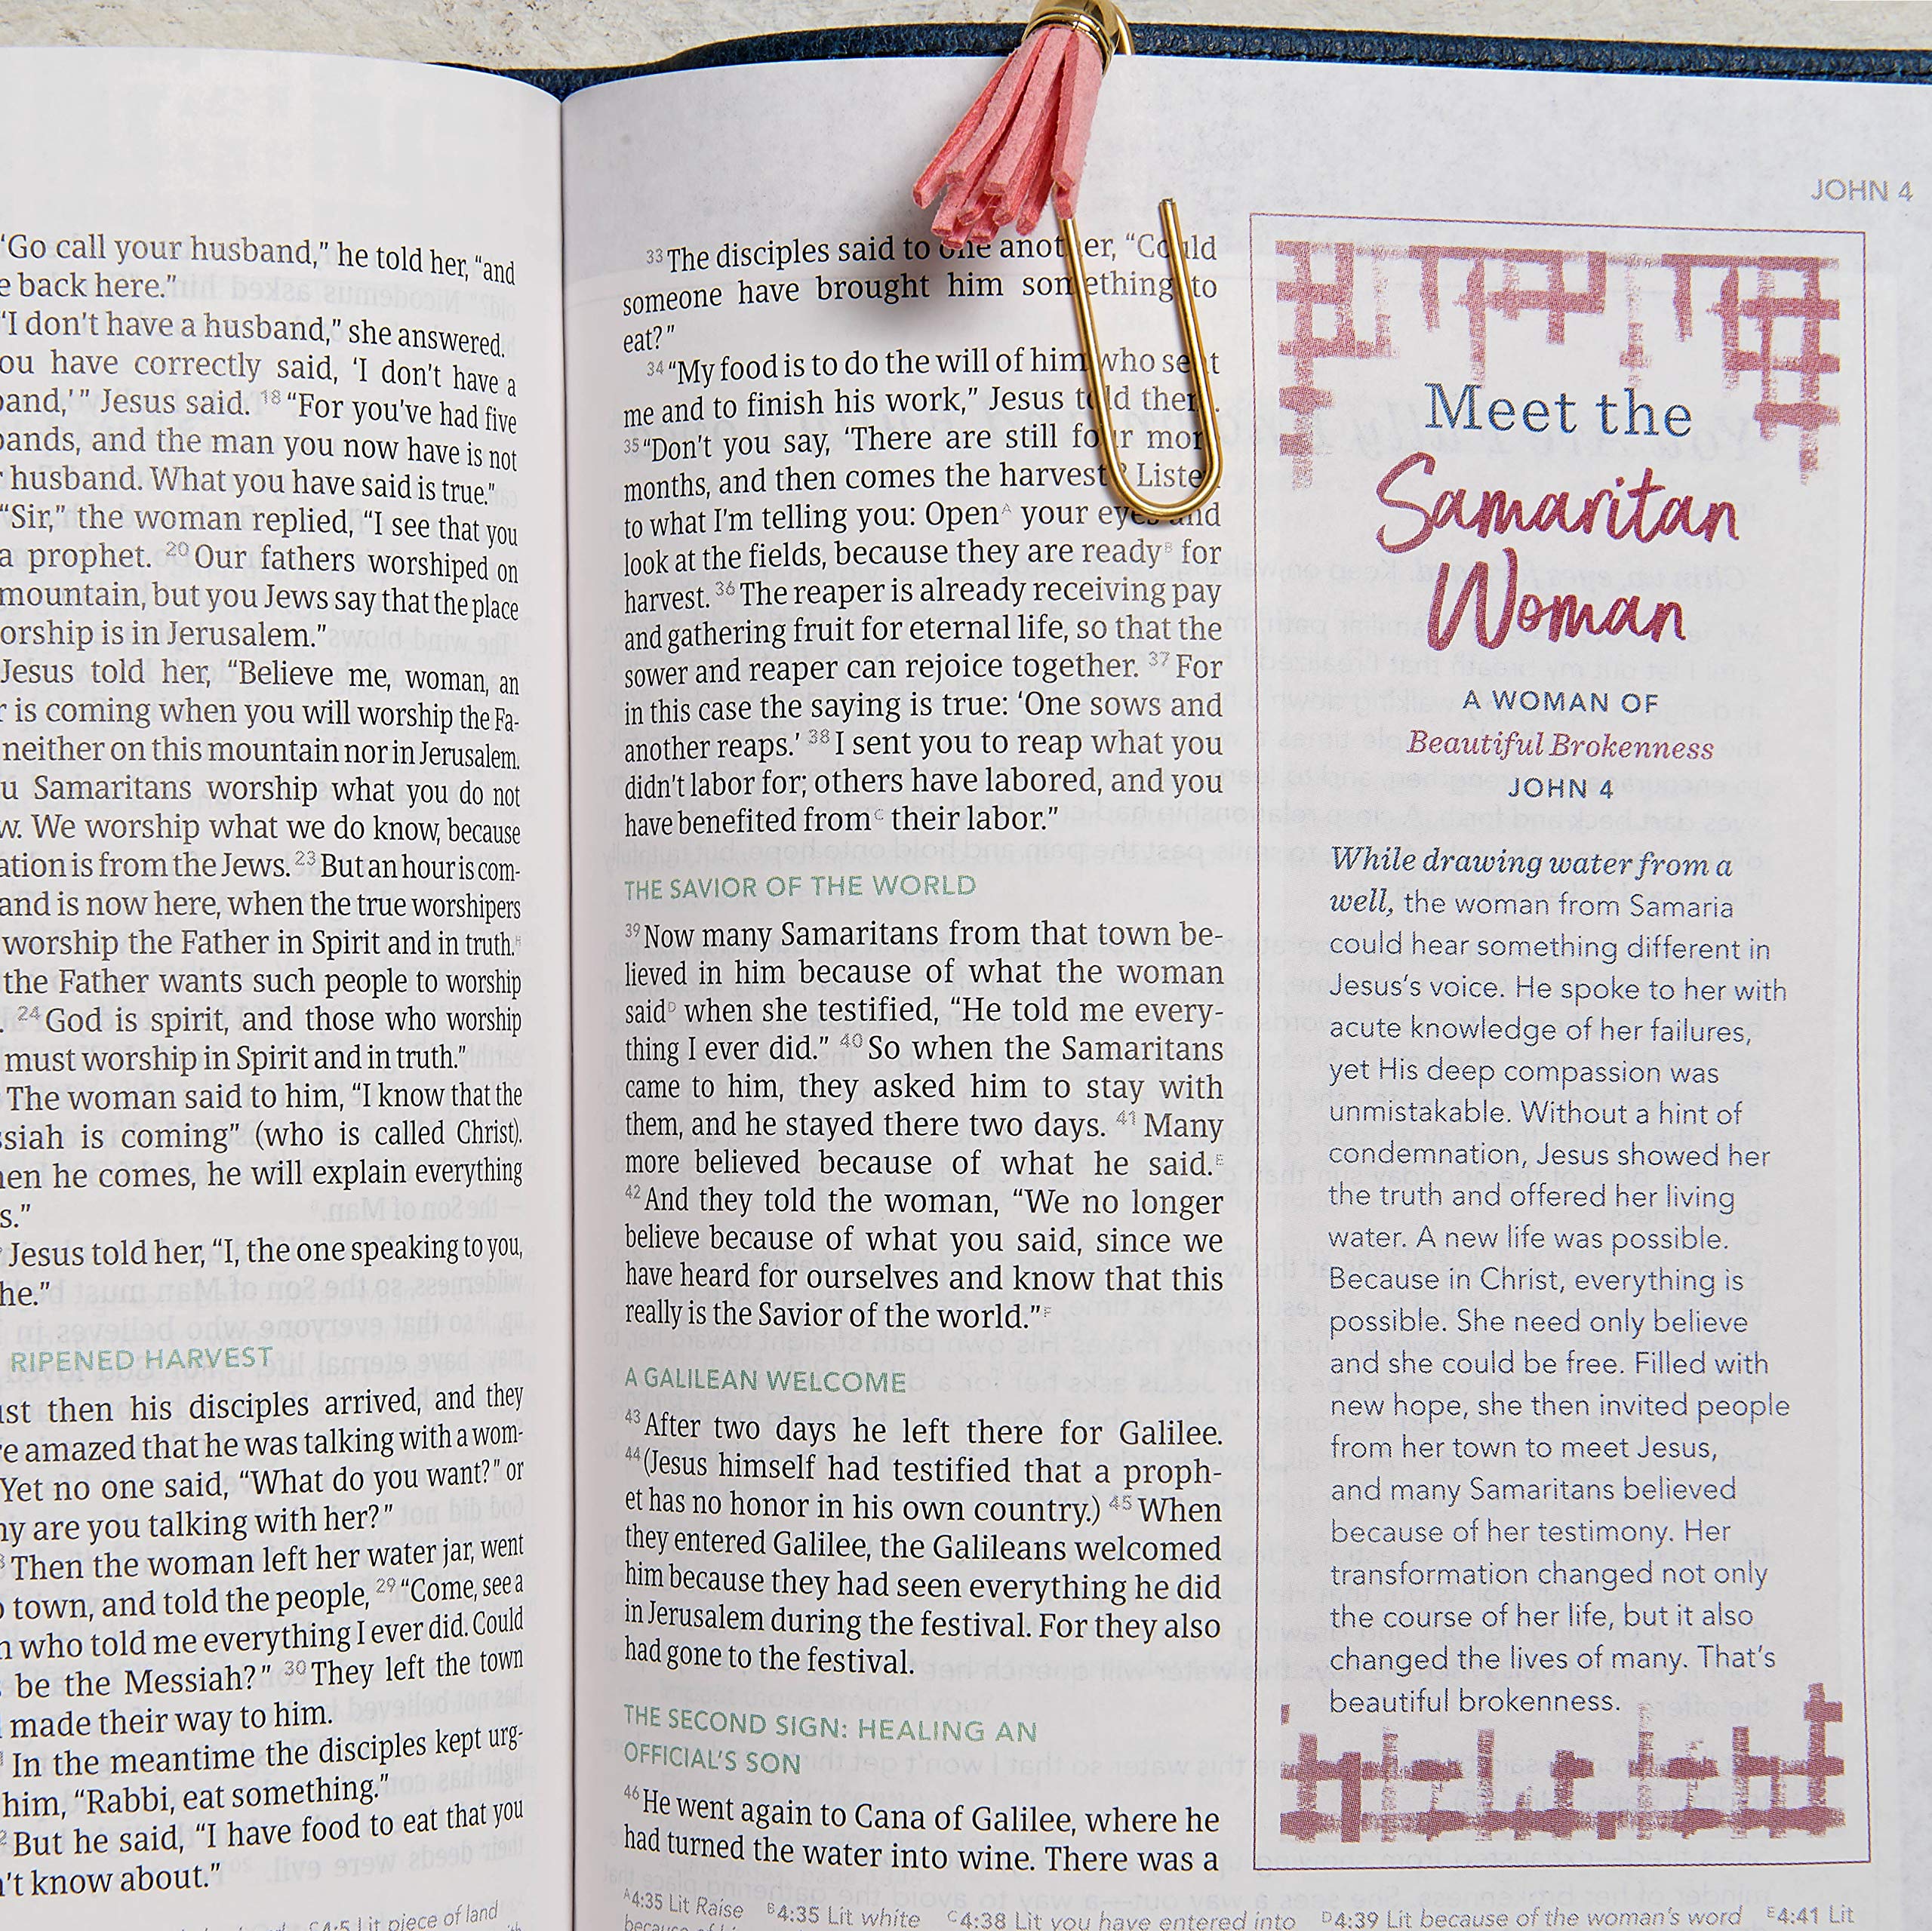 “Go call your husband,” he told her, “and
back here.”
“I don't have a husband,” she answered.
have correctly said, ‘I don't have a
Jesus said. 18 “For you've had five
and the man you now have is not
husband. What you have said is true.”
“Sir,” the woman replied, “I see that you
a prophet. 20 Our fathers worshiped on
mountain, but you Jews say that the place
is in Jerusalem.”
Jesus told her, “Believe me, woman, an
is coming when you will worship the Fa-
neither on this mountain nor in Jerusalem.
Samaritans worship what you do not
We worship what we do know, because
is from the Jews. 23 But an hour is com-
and is now here, when the true worshipers
worship the Father in Spirit and in truth.H
the Father wants such people to worship
24 God is spirit, and those who worship
must worship in Spirit and in truth.”
The woman said to him, “I know that the
is coming” (who is called Christ).
he comes, he will explain everything
Jesus told her, “I, the one speaking to you,
he.”
RIPENED HARVEST
then his disciples arrived, and they
amazed that he was talking with a wom-
Yet no one said, “What do you want?” or
are you talking with her?”
Then the woman left her water jar, went
town, and told the people, 29 “Come, see a
who told me everything I ever did. Could
be the Messiah?” 30 They left the town
made their way to him.
In the meantime the disciples kept urg-
him, “Rabbi, eat something.”
But he said, “I have food to eat that you
know about.”
C4:5 Lit piece of land
JOHN 4
33 The disciples said to one another, “Could
someone have brought him something to
eat?”
34 “My food is to do the will of him who sent
me and to finish his work,” Jesus told them.
35 “Don't you say, ‘There are still four more
months, and then comes the harvest’? Listen
to what I'm telling you: OpenA your eyes and
look at the fields, because they are readyB for
harvest. 36 The reaper is already receiving pay
and gathering fruit for eternal life, so that the
sower and reaper can rejoice together. 37 For
in this case the saying is true: ‘One sows and
another reaps.’ 38 I sent you to reap what you
didn't labor for; others have labored, and you
have benefited fromC their labor.”
THE SAVIOR OF THE WORLD
39 Now many Samaritans from that town be-
lieved in him because of what the woman
saidD when she testified, “He told me every-
thing I ever did.” 40 So when the Samaritans
came to him, they asked him to stay with
them, and he stayed there two days. 41 Many
more believed because of what he said.E
42 And they told the woman, “We no longer
believe because of what you said, since we
have heard for ourselves and know that this
really is the Savior of the world.”F
A GALILEAN WELCOME
43 After two days he left there for Galilee.
44 (Jesus himself had testified that a proph-
et has no honor in his own country.) 45 When
they entered Galilee, the Galileans welcomed
him because they had seen everything he did
in Jerusalem during the festival. For they also
had gone to the festival.
THE SECOND SIGN: HEALING AN
OFFICIAL'S SON
46 He went again to Cana of Galilee, where he
had turned the water into wine. There was a
A4:35 Lit Raise B4:35 Lit white C4:38 Lit you have entered into D4:39 Lit because of the woman's word E4:41 Lit
Meet the
Samaritan
Woman
A WOMAN OF
Beautiful Brokenness
JOHN 4
While drawing water from a
well, the woman from Samaria
could hear something different in
Jesus's voice. He spoke to her with
acute knowledge of her failures,
yet His deep compassion was
unmistakable. Without a hint of
condemnation, Jesus showed her
the truth and offered her living
water. A new life was possible.
Because in Christ, everything is
possible. She need only believe
and she could be free. Filled with
new hope, she then invited people
from her town to meet Jesus,
and many Samaritans believed
because of her testimony. Her
transformation changed not only
the course of her life, but it also
changed the lives of many. That's
beautiful brokenness.